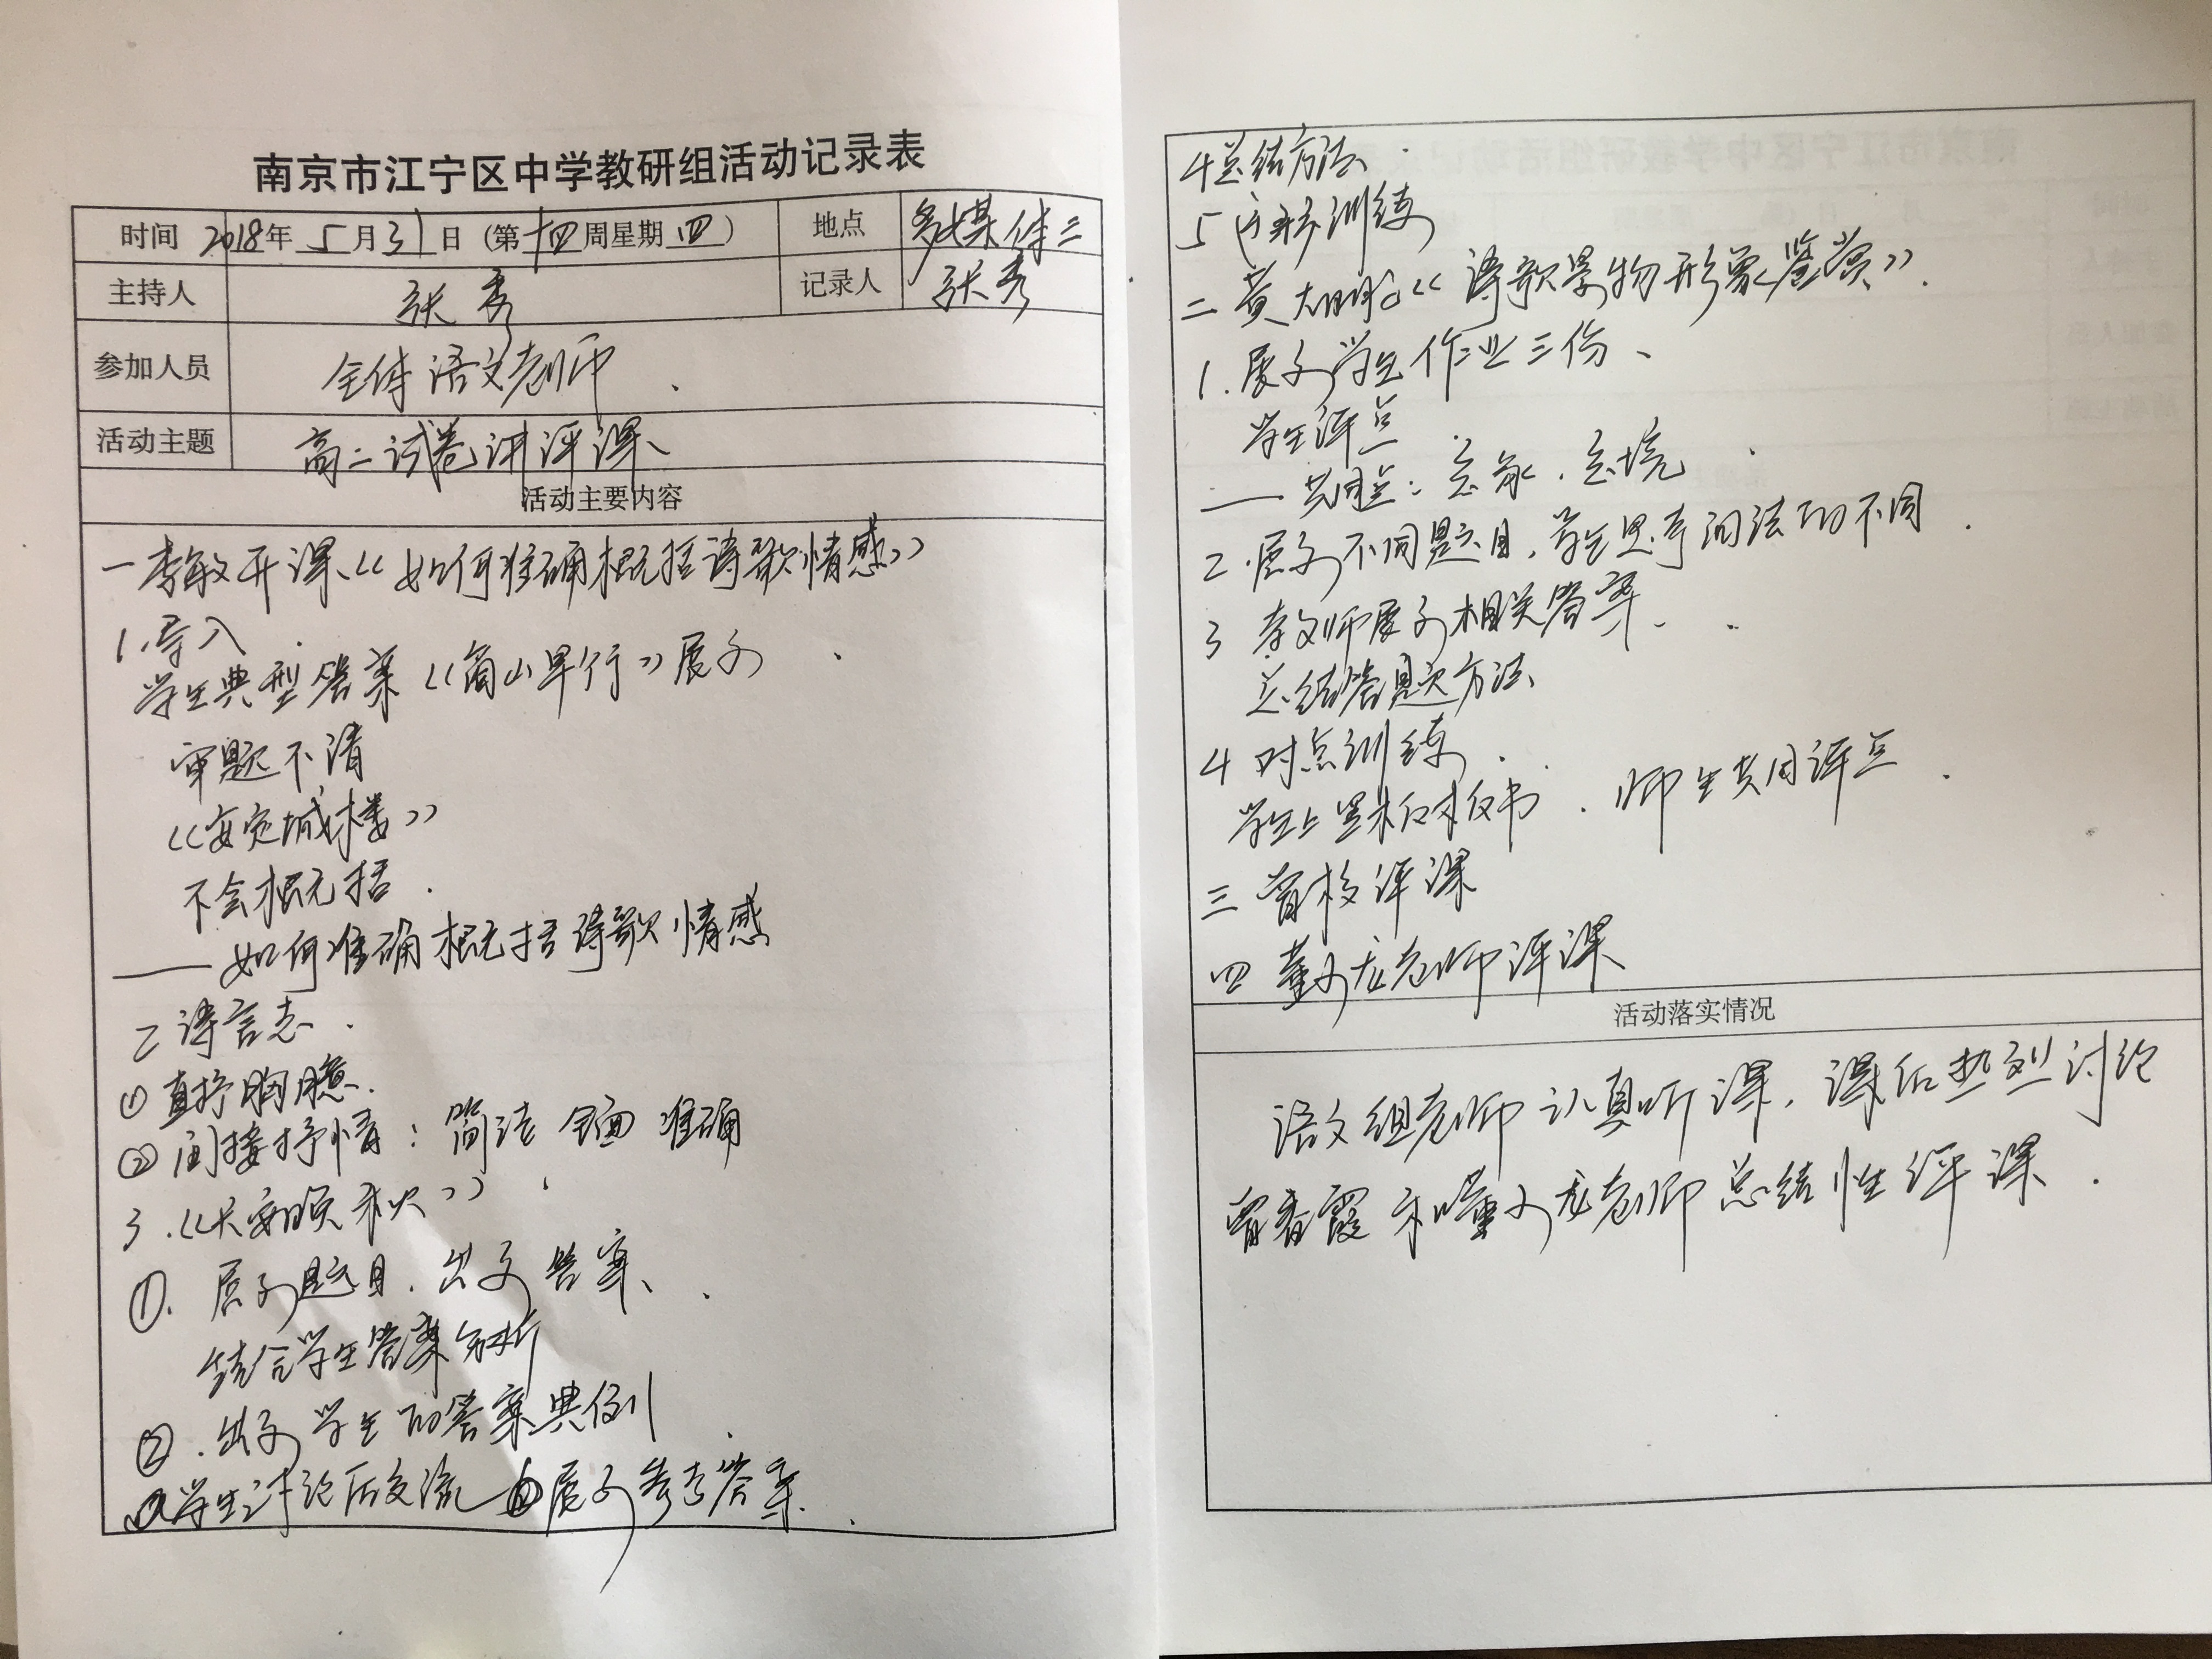 南京市江宁区中学教研组活动记录表
时间 2018年 5 月 31 日（第 十四 周星期 四 ） 地点 多媒体二
主持人 张秀 记录人 张秀
参加人员 全体语文老师
活动主题 高二试卷讲评课
活动主要内容
一 李敏开课《如何准确概括诗歌情感》
1.导入
学生典型答案《商山早行》展示
审题不清
《安定城楼》
不会概括
——如何准确概括诗歌情感
2 诗言志
① 直抒胸臆
② 间接抒情：简洁 全面 准确
3.《长安晚秋》
①. 展示题目.出示答案、
结合学生答案分析
②.出示学生的答案典例
学生讨论后交流 展示参考答案.
4 总结方法
5 训练
二 黄大明《诗歌景物形象鉴赏》
1.展示学生作业三份、
学生评点
——共同点：意象.意境
2.展示不同题目,学生思考问法的不同
3 李老师展示相关答案.
总结答题方法
4 对点训练
学生上黑板板书.师生共同评点
三 曾校评课
四 董必龙老师评课
活动落实情况
语文组老师认真听课，课后热烈讨论
曾春霞和董必龙老师总结性评课.